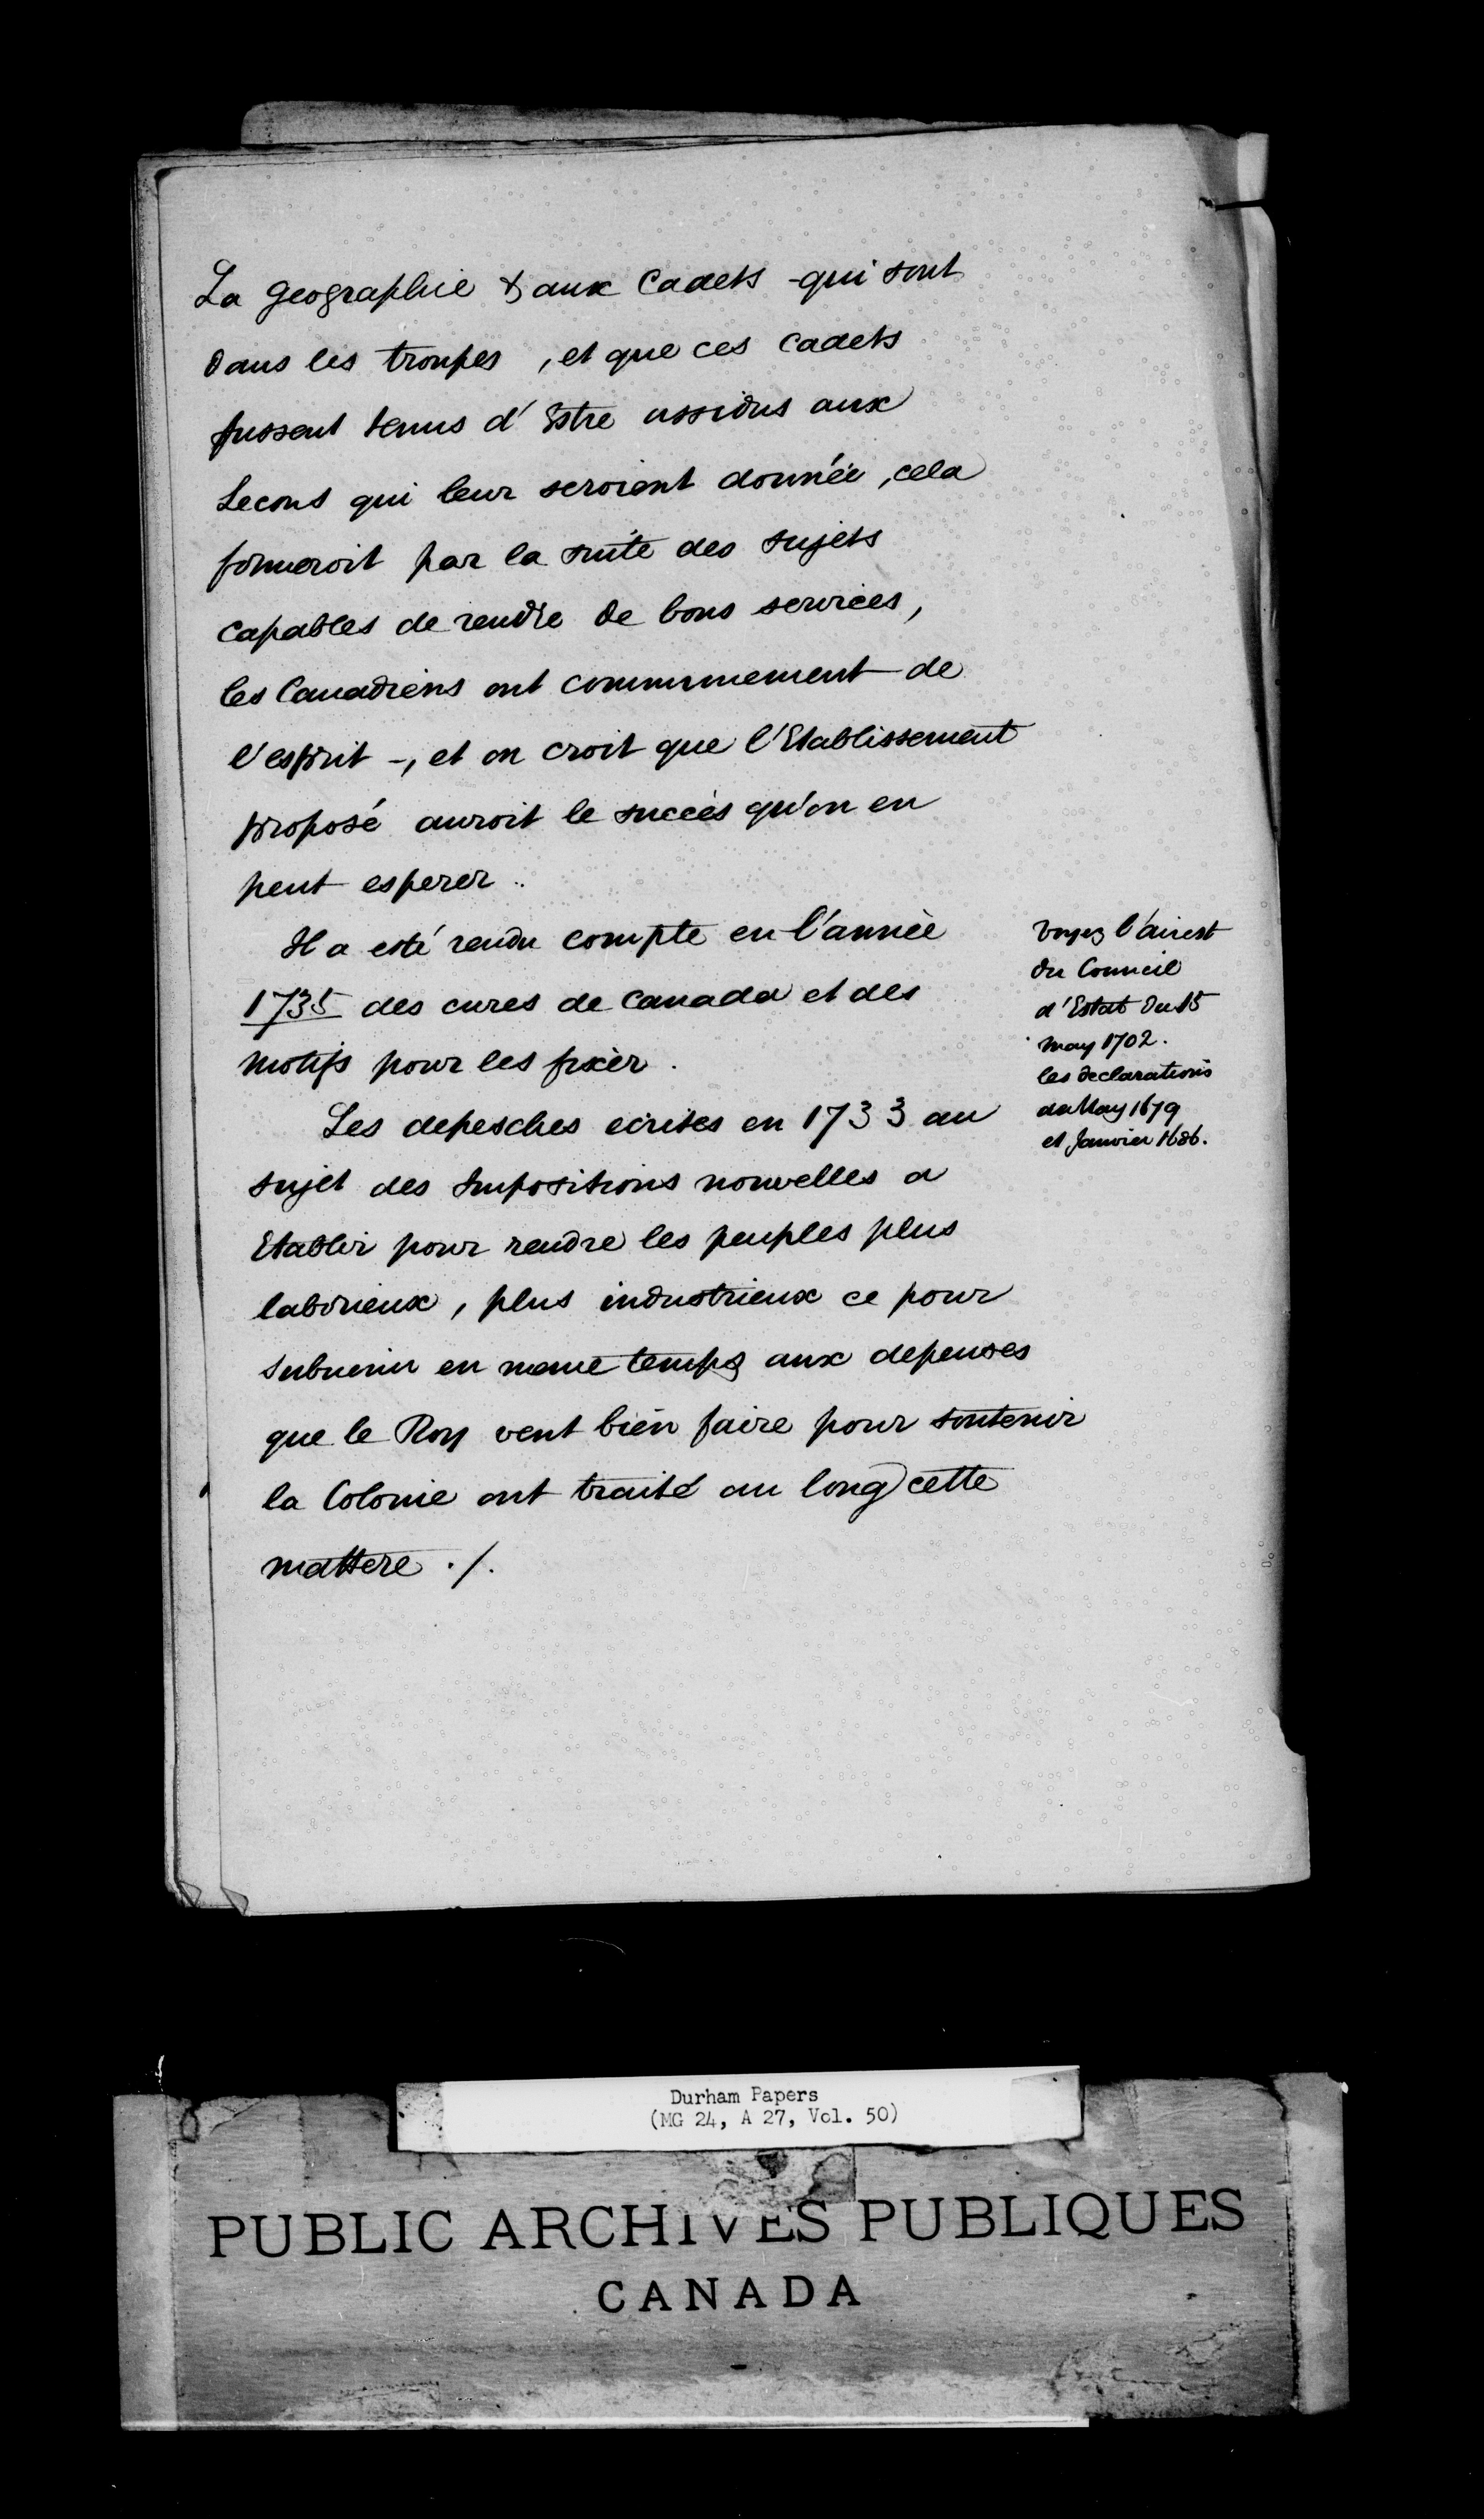 La geographie & aux Cadets - qui sont
dans les troupes, et que ces cadets
fussent tenus d'Estre assidus aux
Lecons qui leur seroient donnée, cela
formeroit par la suite des sujets
capables de rendre de bons services,
les Canadiens ont communement de
l'esprit -, et on croit que l'Etablissement
proposé auroit le succès qu'on en
peut esperer ..
Il a esté rendu compte en l'année
1735 des cures de Canada et des
motifs pour les fixer.
Voyez l'airest
du Conneil
d'Estat du 15
may 1702.
les declarations
da May 1679
et Janvier 1686.
Les depesches ecrites en 1733 au
sujet des Impositions nouvelles a
Etablir pour rendre les peuples plus
laborieux, plus industrieux ce pour
subvenir en meme temps aux depenses
que le Roy veut bien faire pour soutenir
la Colonie ont traité au long cette
mattere ./.
Durham Papers
(MG 24, A 27, Vol. 50)
PUBLIC ARCHIVES PUBLIQUES
CANADA